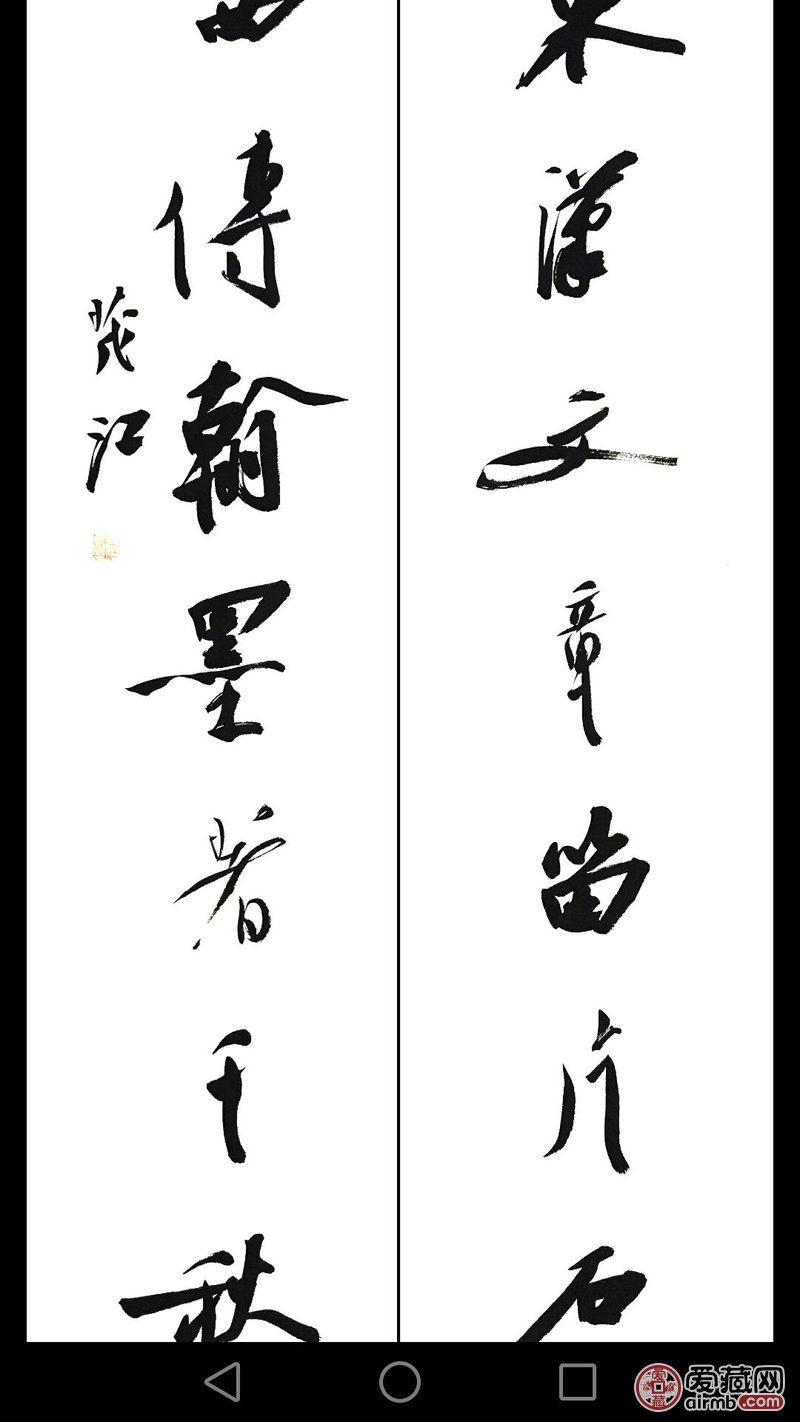 東漢文章留片石
傳翰墨著千秋
茂江
爱藏网
airmb.com